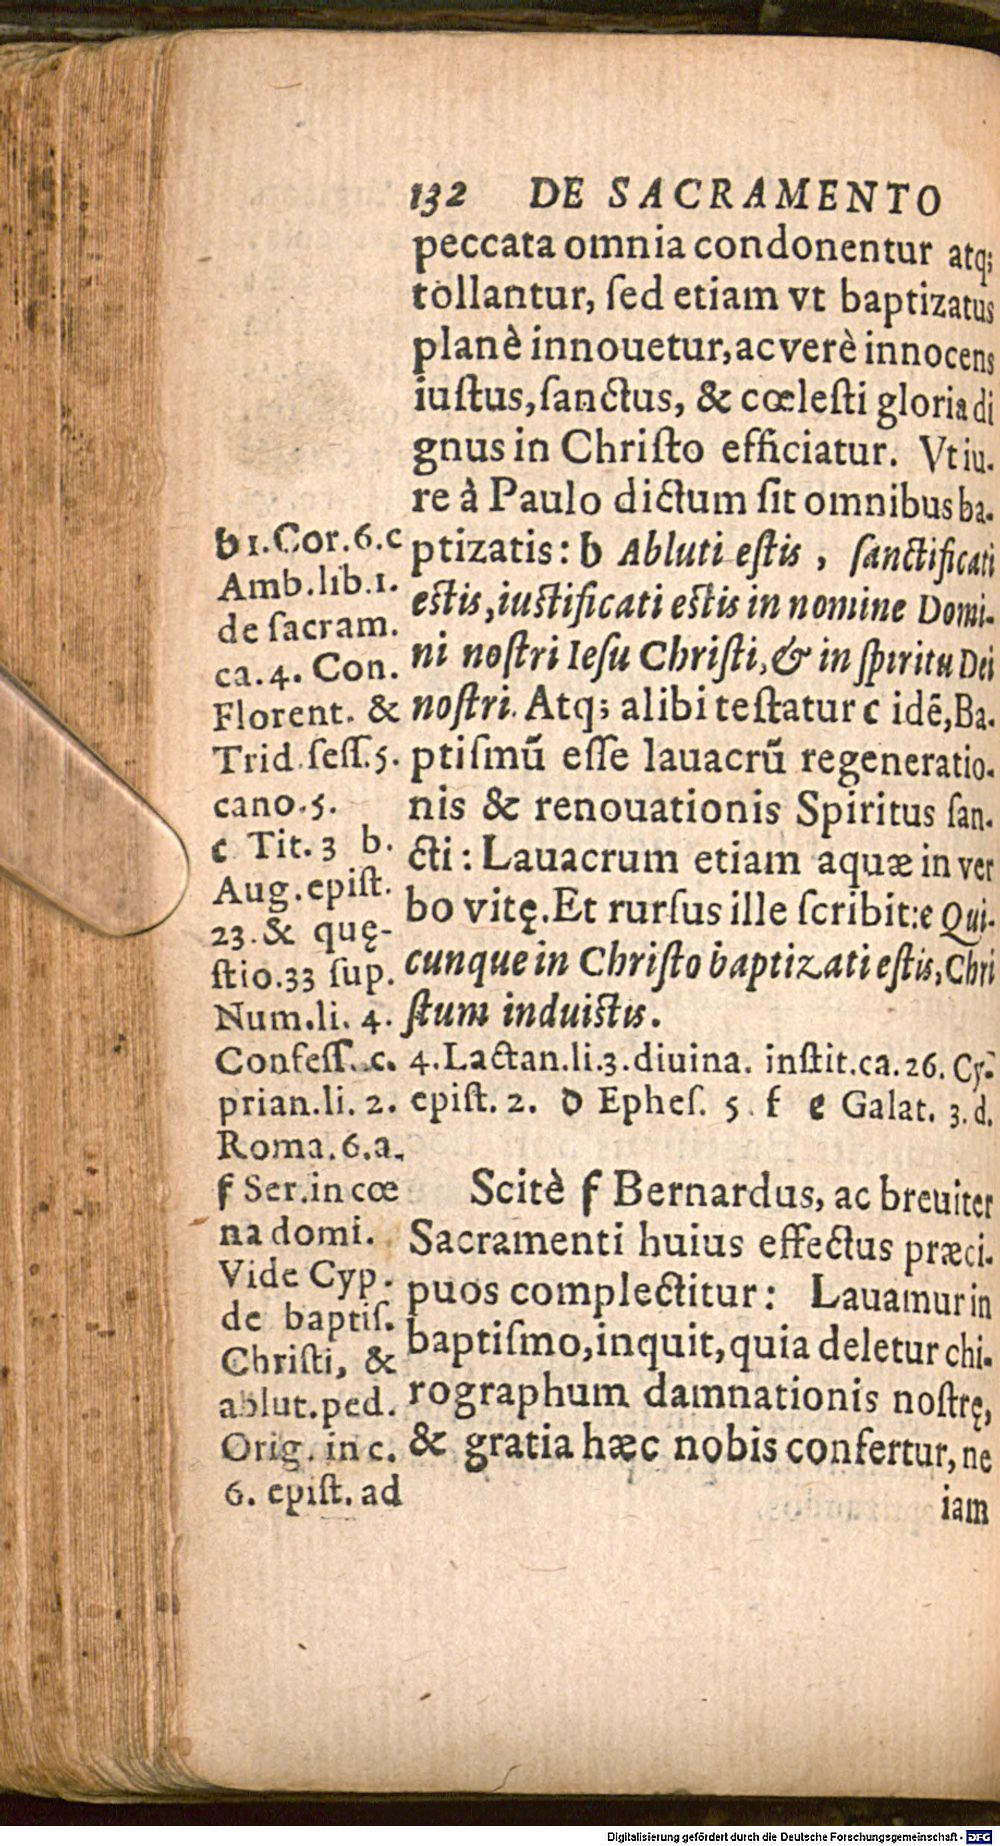 132 DE SACRAMENTO
peccata omnia condonentur atq;
tollantur, ſed etiam vt baptizatus
planè innouetur, ac verè innocens
iuſtus, ſanctus, & cœleſti gloria di
gnus in Chriſto efficiatur. Vt iu-
re à Paulo dictum ſit omnibus ba-
ptizatis: b Abluti eſtis, ſanctificati
eſtis, iuſtificati eſtis in nomine Domi-
ni noſtri Ieſu Chriſti, & in ſpiritu Dei
noſtri. Atq; alibi teſtatur c idē, Ba-
ptiſmũ eſſe lauacrũ regeneratio-
nis & renouationis Spiritus ſan-
cti: Lauacrum etiam aquæ in ver
bo vitę. Et rurſus ille ſcribit: e Qui-
cunque in Chriſto baptizati eſtis, Chri
ſtum induiſtis.
b 1. Cor. 6. c
Amb. lib. 1.
de ſacram.
ca. 4. Con.
Florent. &
Trid. ſeſſ. 5.
cano. 5.
c Tit. 3 b.
Aug. epiſt.
23. & quę-
ſtio. 33 ſup.
Num. li. 4.
Confeſſ. c. 4. Lactan. li. 3. diuina. inſtit. ca. 26. Cy-
prian. li. 2. epiſt. 2. d Epheſ. 5. f e Galat. 3. d.
Roma. 6. a.
f Ser. in cœ
na domi.
Vide Cyp.
de baptiſ.
Chriſti, &
ablut. ped.
Orig. in c.
6. epiſt. ad
Scitè f Bernardus, ac breuiter
Sacramenti huius effectus præci-
puos complectitur: Lauamur in
baptiſmo, inquit, quia deletur chi-
rographum damnationis noſtrę,
& gratia hæc nobis confertur, ne
iam
Digitalisierung gefördert durch die Deutsche Forschungsgemeinschaft - DFG